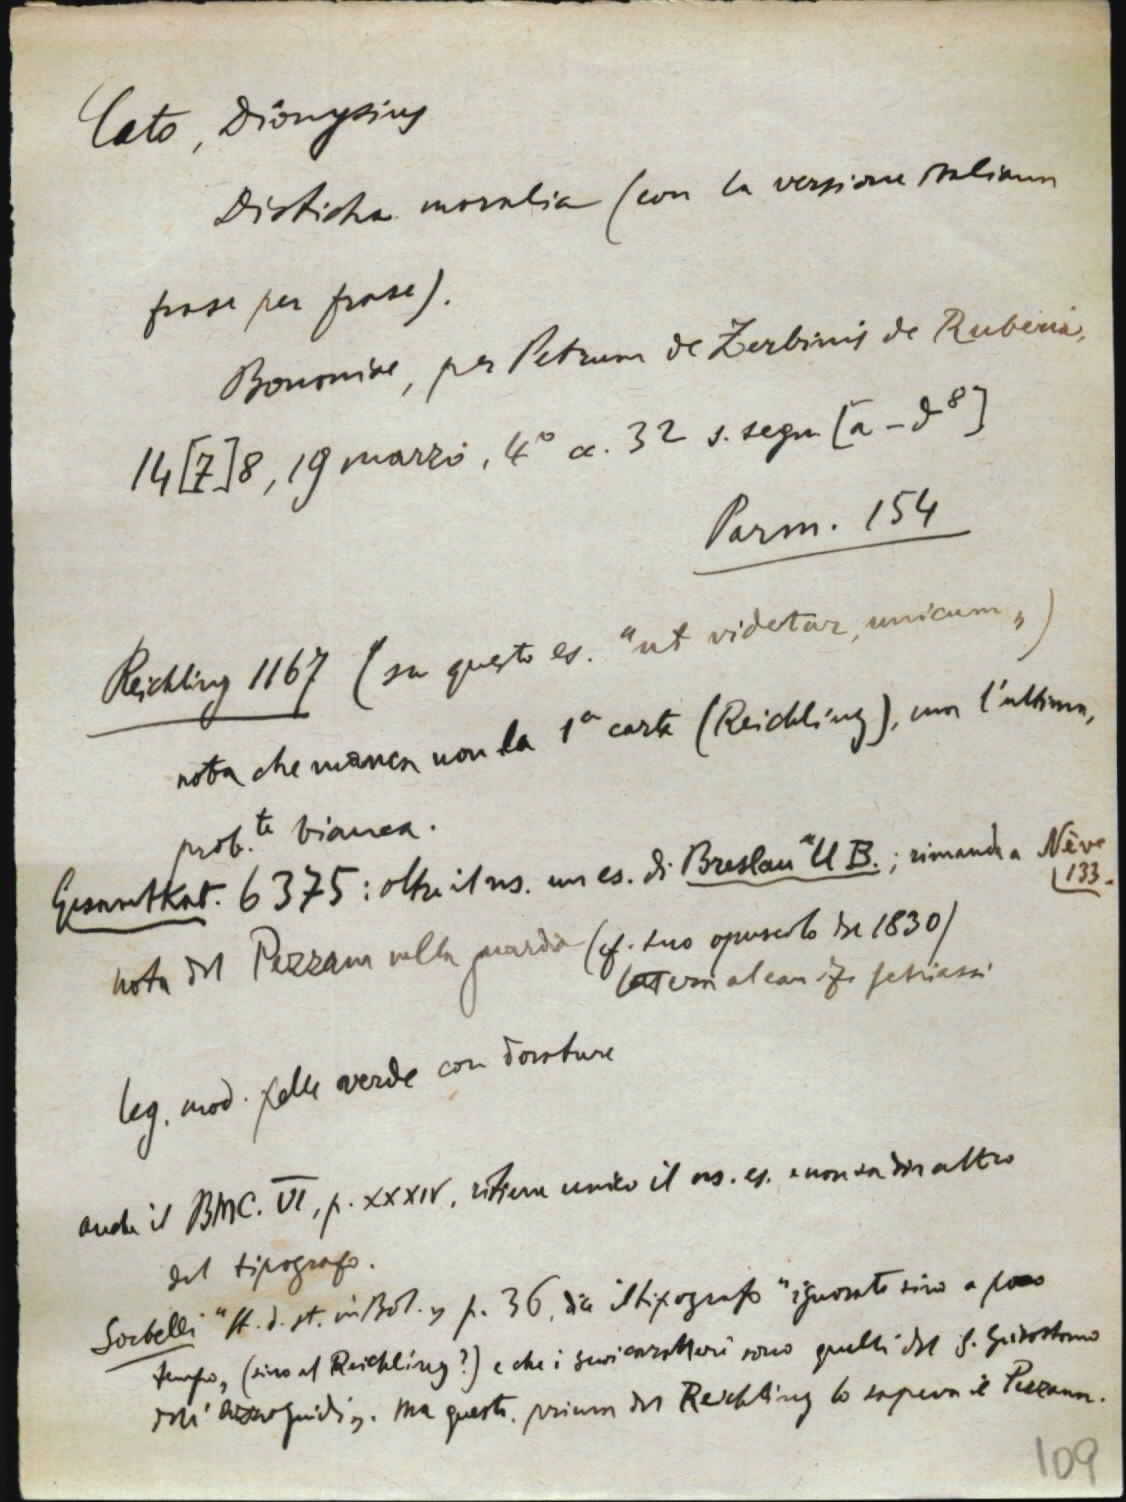 Cato, Dionysius
Disticha moralia (con la versione italiana
frase per frase).
Bononiae, per Petrum de Zerbinis de Ruberia,
14[7]8, 19 marzo, 4° cc. 32 s. segn [a - d⁸]
Parm. 154
Reichling 1167 (su questo es. "ut videtur, unicum")
nota che manca non la 1ª carta (Reichling), ma l'ultima,
prob.te bianca.
Gesamtkat. 6375: oltre il ns. un es. di Breslau "UB.; rimanda a Nève
133.
nota del Pezzana nella guardia (cf. suo opuscolo del 1830)
leg. mod. pelle verde con dorature
anche il BMC. VI, p. XXXIV, ritiene unico il ns. es. e non sa dir altro
del tipografo.
Sorbelli "St. d. st. in Bol." p. 36, dice il tipografo "ignorato sino a poco
tempo" (sino al Reichling?) e che i suoi caratteri sono quelli del S. Grisostomo
dell'Azzoguidi". Ma questo, prima del Reichling lo sapeva il Pezzana.
109